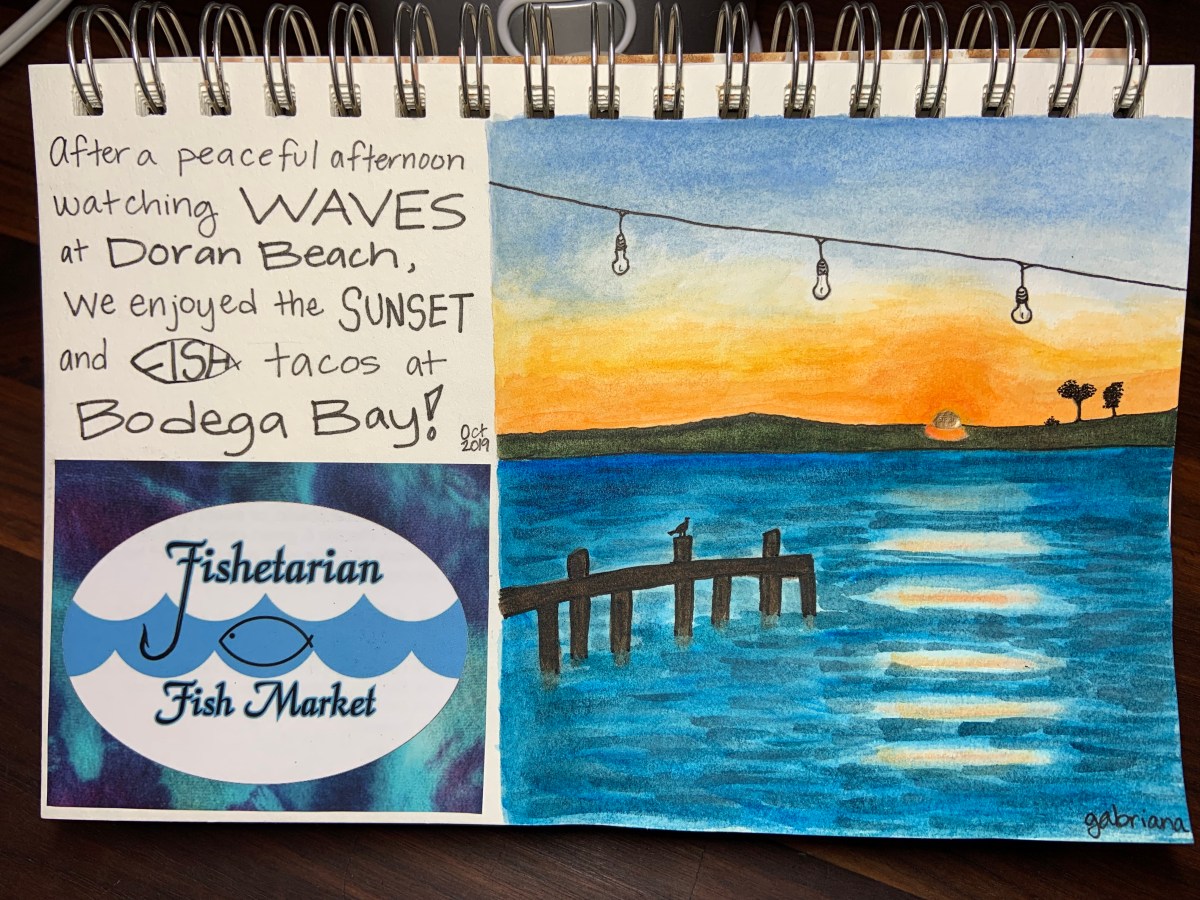 After a peaceful afternoon
watching WAVES
at Doran Beach,
We enjoyed the SUNSET
and FISH tacos at
Bodega Bay!
Oct
2019
Fishetarian
Fish Market
gabriana